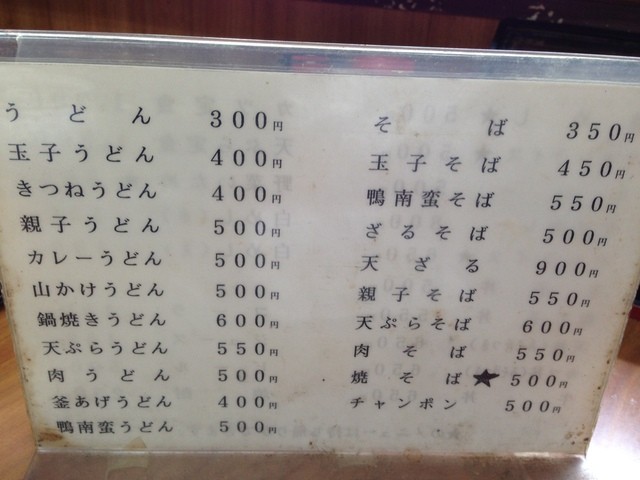 うどん 300円
玉子うどん 400円
きつねうどん 400円
親子うどん 500円
カレーうどん 500円
山かけうどん 500円
鍋焼きうどん 600円
天ぷらうどん 550円
肉うどん 500円
釜あげうどん 400円
鴨南蛮うどん 500円
そば 350円
玉子そば 450円
鴨南蛮そば 550円
ざるそば 500円
天ざる 900円
親子そば 550円
天ぷらそば 600円
肉そば 550円
焼そば★ 500円
チャンポン 500円